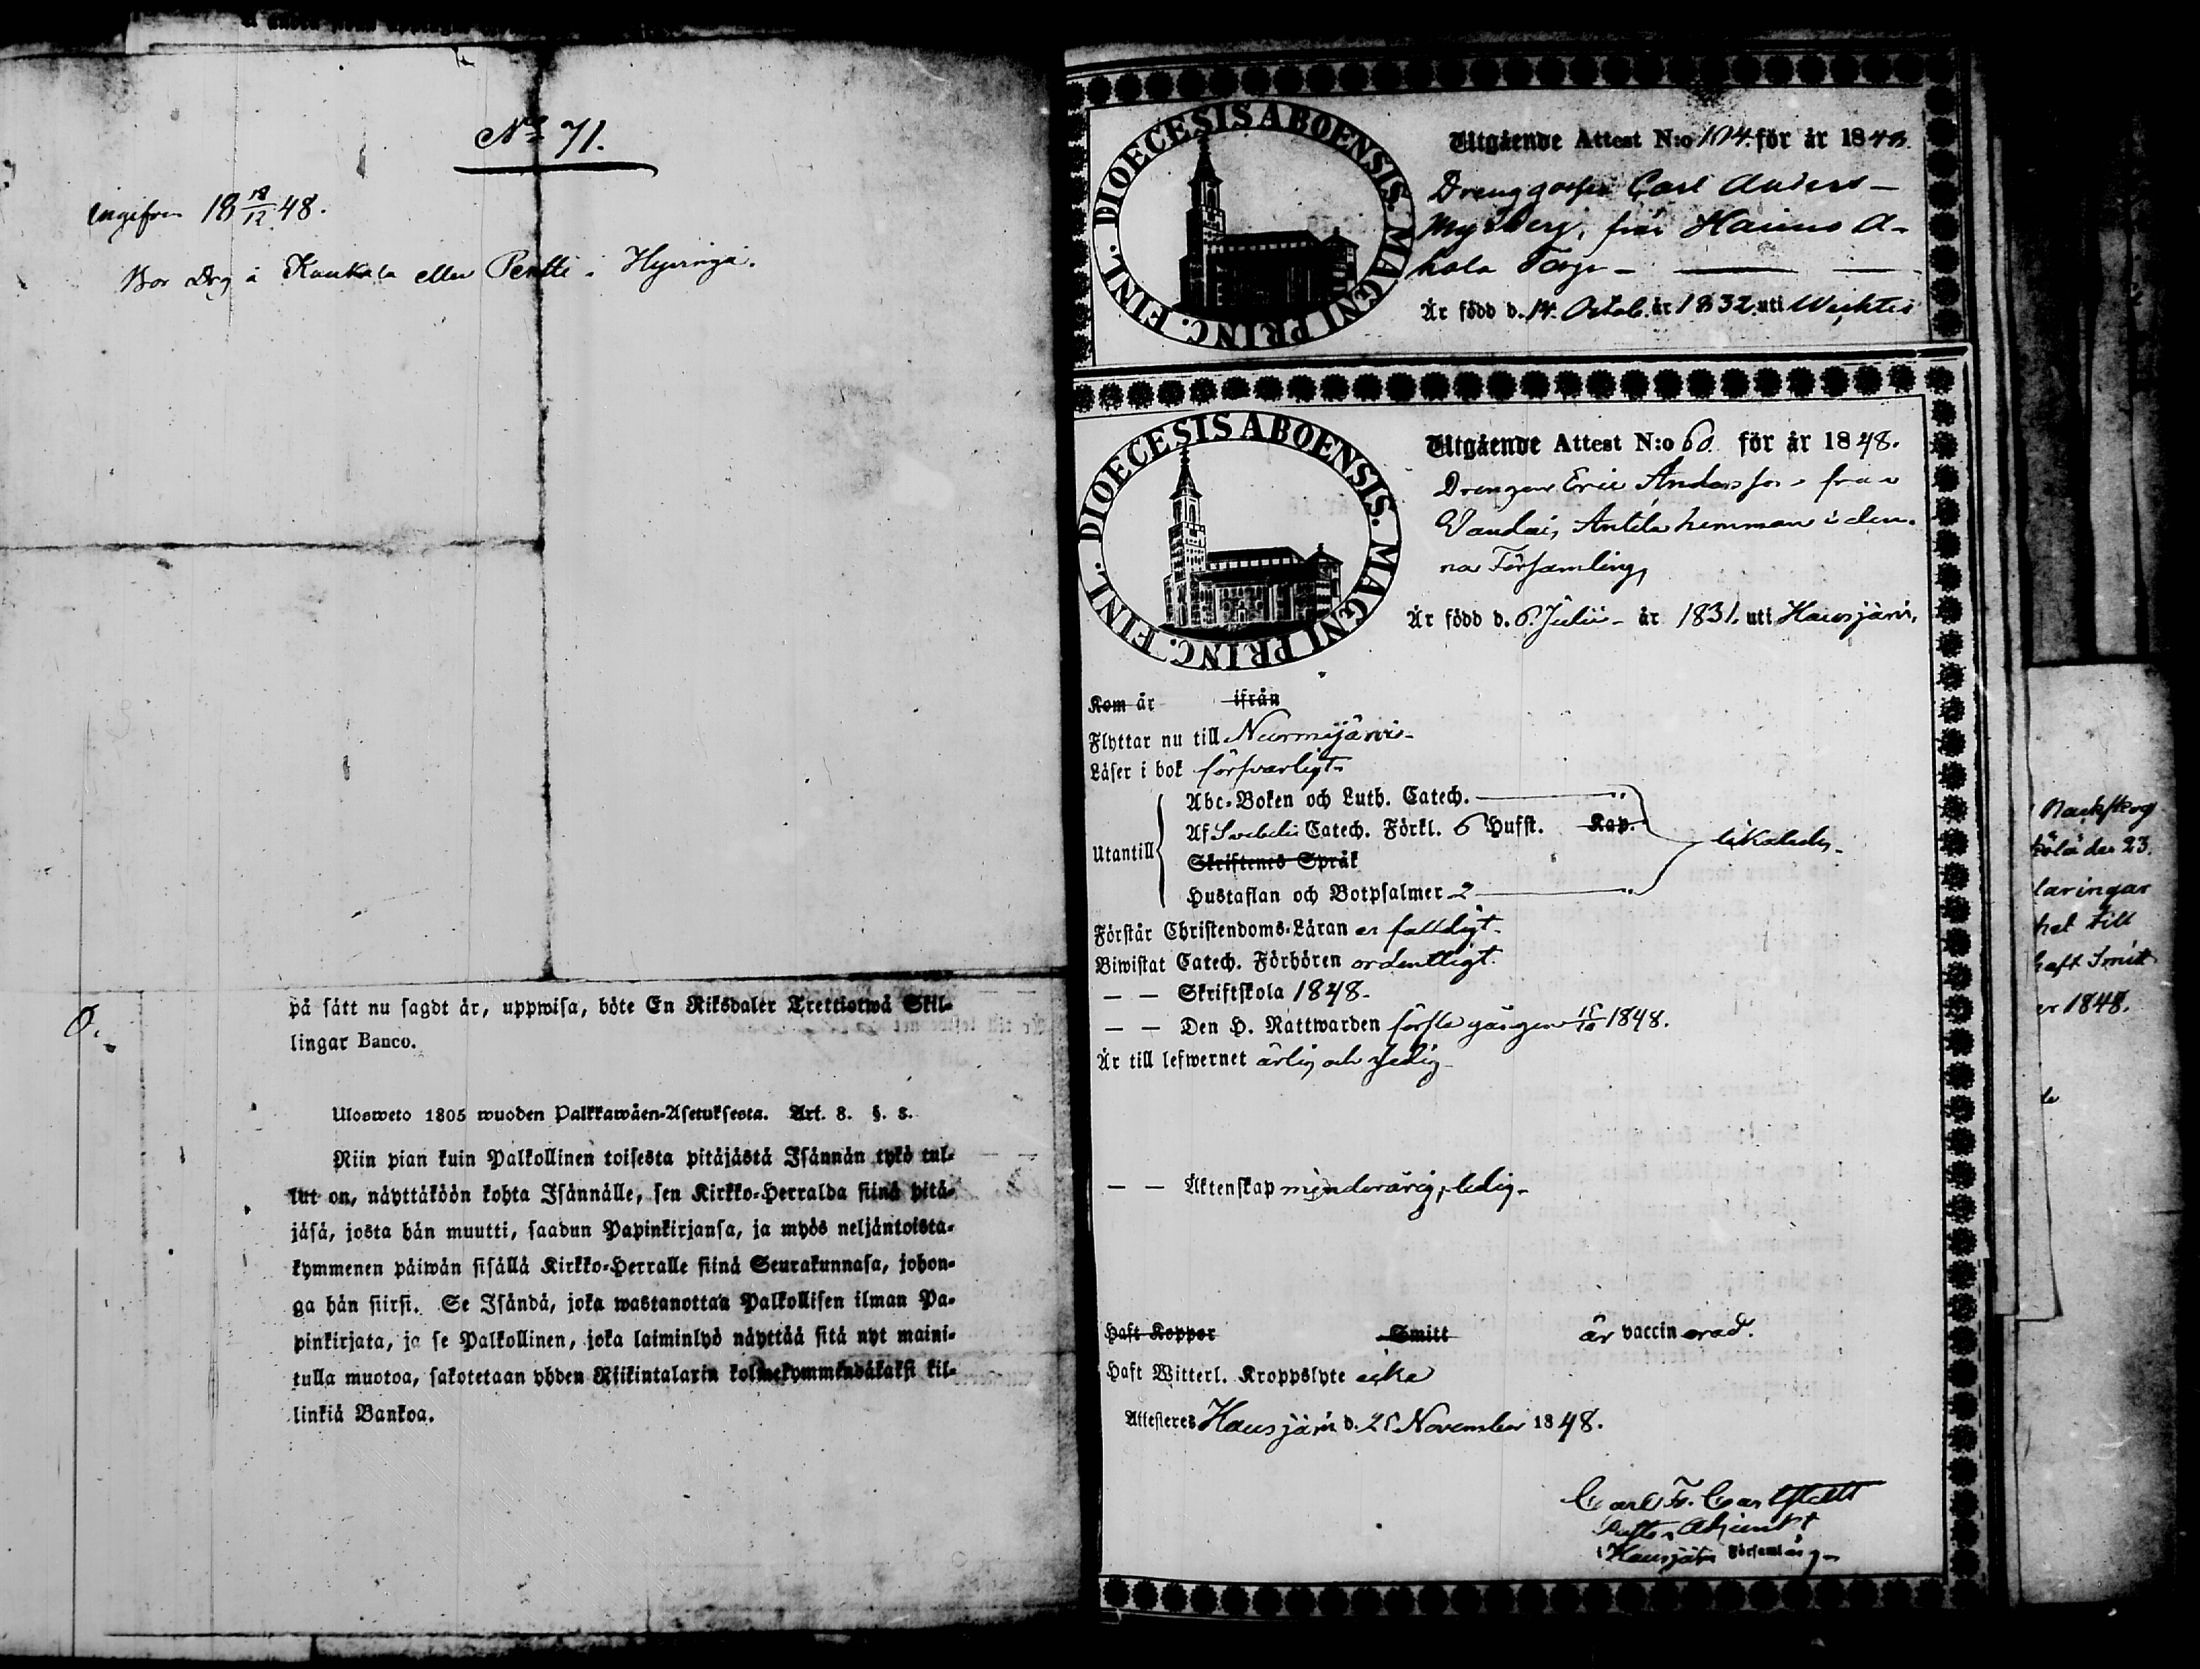 No 71.
Ingifven 18 18/12 48.
Bor Drg å Kaukala eller Pentti i Hyvinge.
på sätt nu sagdt är, uppwisa, böte En Riksdaler Trettiotwå Skil-
lingar Banco.
Ulosweto 1805 wuoden Palkkawäen-Asetuksesta. Art. 8. §. 8.
Niin pian kuin Palkollinen toisesta pitäjästä Isännän tykö tul-
lut on, näyttäköön kohta Isännälle, sen Kirkko-Herralda siinä pitä-
jäsä, josta hän muutti, saadun Papinkirjansa, ja myös neljäntoista-
kymmenen päiwän sisällä Kirkko-Herralle siinä Seurakunnasa, johon-
ga hän siirsi. Se Isändä, joka wastanottaa Palkollisen ilman Pa-
pinkirjata, ja se Palkollinen, joka laiminlyö näyttää sitä nyt maini-
tulla muotoa, sakotetaan yhden Riikintalarin kolmekymmendäkaksi kil-
linkiä Bankoa.
DIOECESIS ABOENSIS. MAGNI PRINC. FINL.
Utgående Attest N:o 104. för år 1848.
Drenggossen Carl Anders
Myrberg, från Haimo A-
hola Torp
Är född d. 14. Octob. år 1832. uti Wichtis
DIOECESIS ABOENSIS. MAGNI PRINC. FINL.
Utgående Attest N:o 60. för år 1848.
Drengen Eric Andersson från
Antila hemman i den-
na Församling,
Är född d. 6. Julii år 1831. uti Hausjärvi,
Kom år ifrån
Flyttar nu till Nurmijärvi
Läser i bok försvarligt
Abc-Boken och Luth. Catech.
Af Svebelii Catech. Förkl. 6 Hufst. Kap.
Utantill likaledes
Skriftenes Språk
Hustaflan och Botpsalmer 2
Förstår Christendoms-Läran enfaldigt
Biwistat Catech. Förhören ordentligt.
— — Skriftskola 1848
— — Den H. Nattwarden första gången 15/10 1848.
Är till lefwernet ärlig och sedig
— — Äktenskap minderårig, ledig
Haft Koppor Smitt är vaccinerad.
Haft Witterl. Kroppslyte icke
Attesteres Hausjärvi d. 21 November 1848.
Carl Fr. Carlstedt
Adjunkt
i Hausjärvi Församling
Nackskog
den 23.
laringar
till
haft Smitt
er 1848.